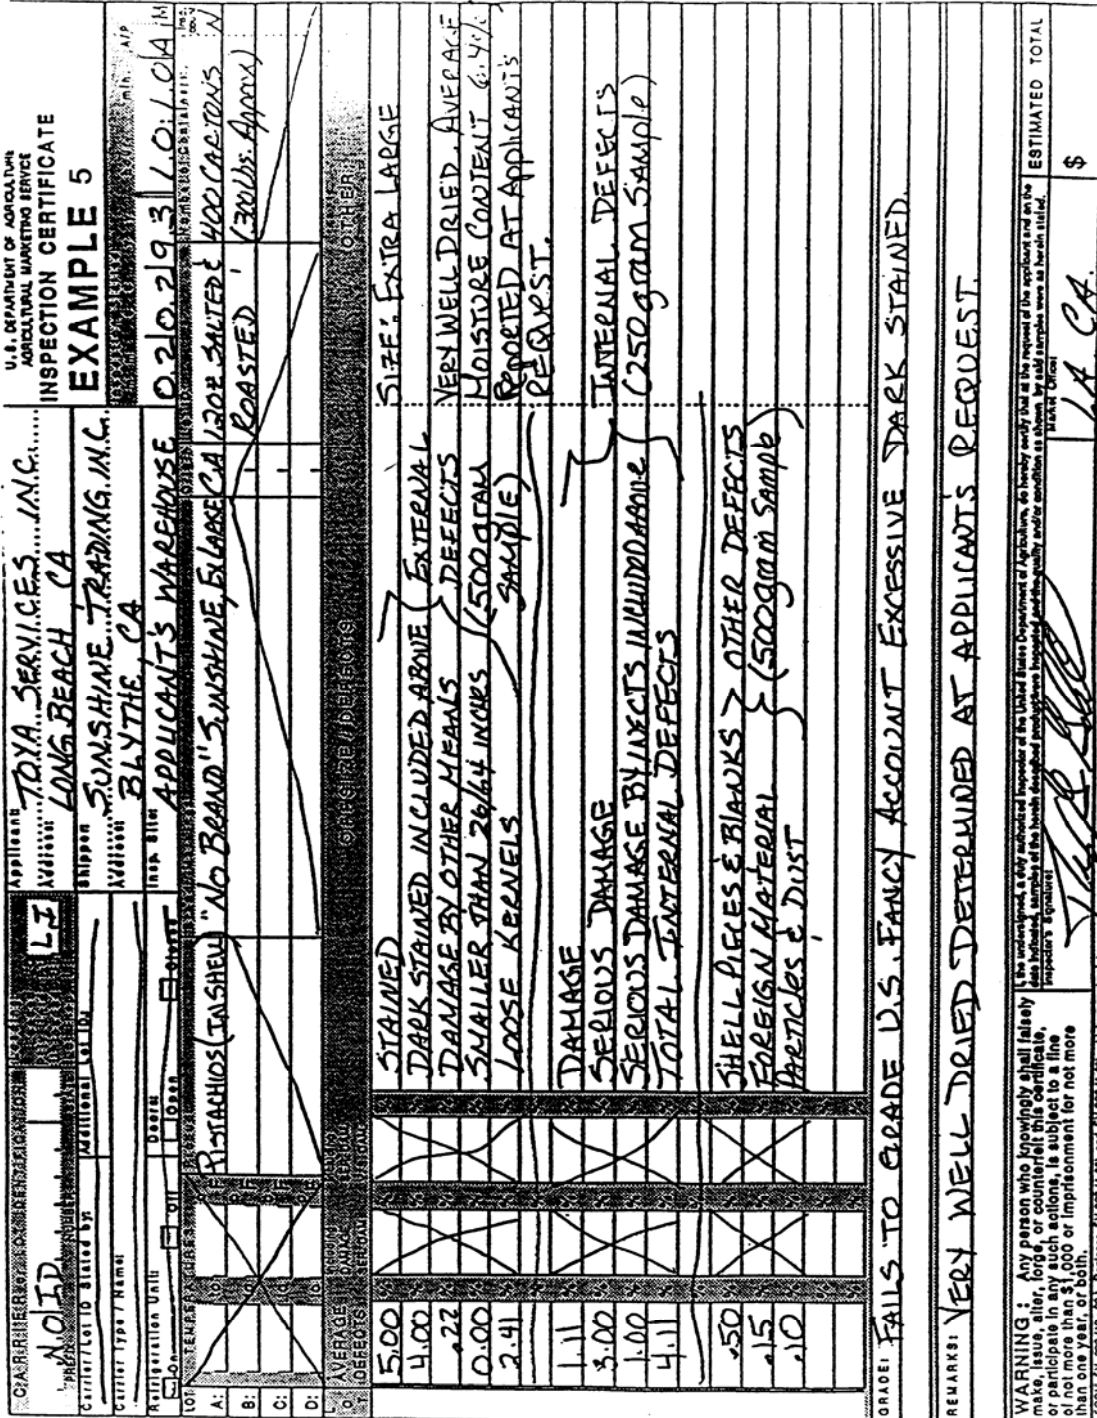 U.S. DEPARTMENT OF AGRICULTURE
AGRICULTURAL MARKETING SERVICE
INSPECTION CERTIFICATE
EXAMPLE 5
CARRIER OR LOT IDENTIFICATION
N.O I D
L I
Carrier/Lot ID Stated by:
Additional Lot ID:
Carrier Type / Name:
Refrigeration Unit:
On
Off
Doors:
Open
Closed
Applicant: TOYA SERVICES INC.
Address: LONG BEACH CA
Shipper: SUNSHINE TRADING, INC.
Address: BLYTHE, CA
Insp. Site: APPLICANT'S WAREHOUSE
0 2 0 2 9 3
1 0 : 1 0 A M
LOT TEMPERATURES
Number of Containers
A: PISTACHIOS (INSHELL) "NO BRAND" SUNSHINE, EX LARGE CA 12oz SALTED & 400 CARTONS N
B: ROASTED (300 Lbs. Approx)
C:
D:
AVERAGE DEFECTS
OFFSIZE/DEFECTS
OTHER
5.00 % STAINED SIZE: EXTRA LARGE
4.00 % DARK STAINED INCLUDED ABOVE EXTERNAL
.22 % DAMAGE BY OTHER MEANS DEFECTS VERY WELL DRIED. AVERAGE
0.00 % SMALLER THAN 26/64 INCHES (500gram MOISTURE CONTENT 6.4%
2.41 % LOOSE KERNELS SAMPLE) REPORTED AT APPLICANT'S
REQUEST.
1.11 % DAMAGE
3.00 % SERIOUS DAMAGE INTERNAL DEFECTS
1.00 % SERIOUS DAMAGE BY INSECTS INCLUDED ABOVE (250gram SAMPLE)
4.11 % TOTAL INTERNAL DEFECTS
.50 % SHELL PIECES & BLANKS > OTHER DEFECTS
.15 % FOREIGN MATERIAL (500gram SAMPLE)
.10 % PARTICLES & DUST
GRADE: FAILS TO GRADE U.S. FANCY ACCOUNT EXCESSIVE DARK STAINED.
REMARKS: VERY WELL DRIED DETERMINED AT APPLICANT'S REQUEST.
WARNING: Any person who knowingly shall falsely
make, issue, alter, forge, or counterfeit this certificate,
or participate in any such actions, is subject to a fine
of not more than $1,000 or imprisonment for not more
than one year, or both.
I, the undersigned, a duly authorized inspector of the United States Department of Agriculture, do hereby certify that at the request of the applicant and on the
date indicated, samples of the herein described product were inspected and the quality and/or condition as shown by said samples were as herein stated.
Inspector's Signature:
Market Office:
LA. CA.
ESTIMATED TOTAL
$